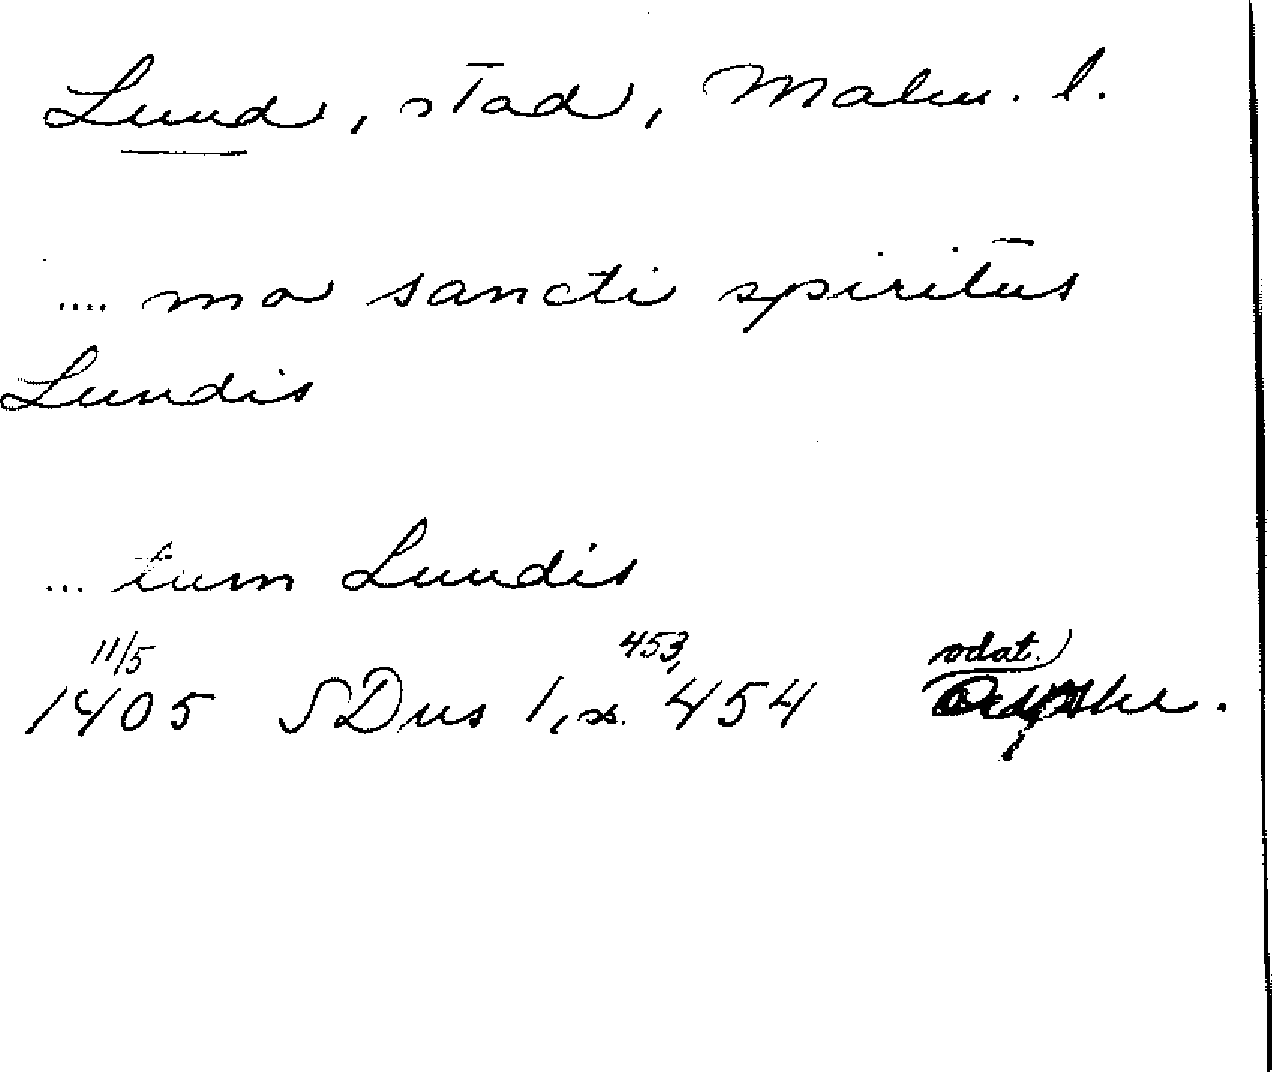 Lund, stad, Malm. l.
.... mo sancti spiritus
Lundis
... tum Lundis
11/5 453, odat.)
1405 SDns 1, s. 454